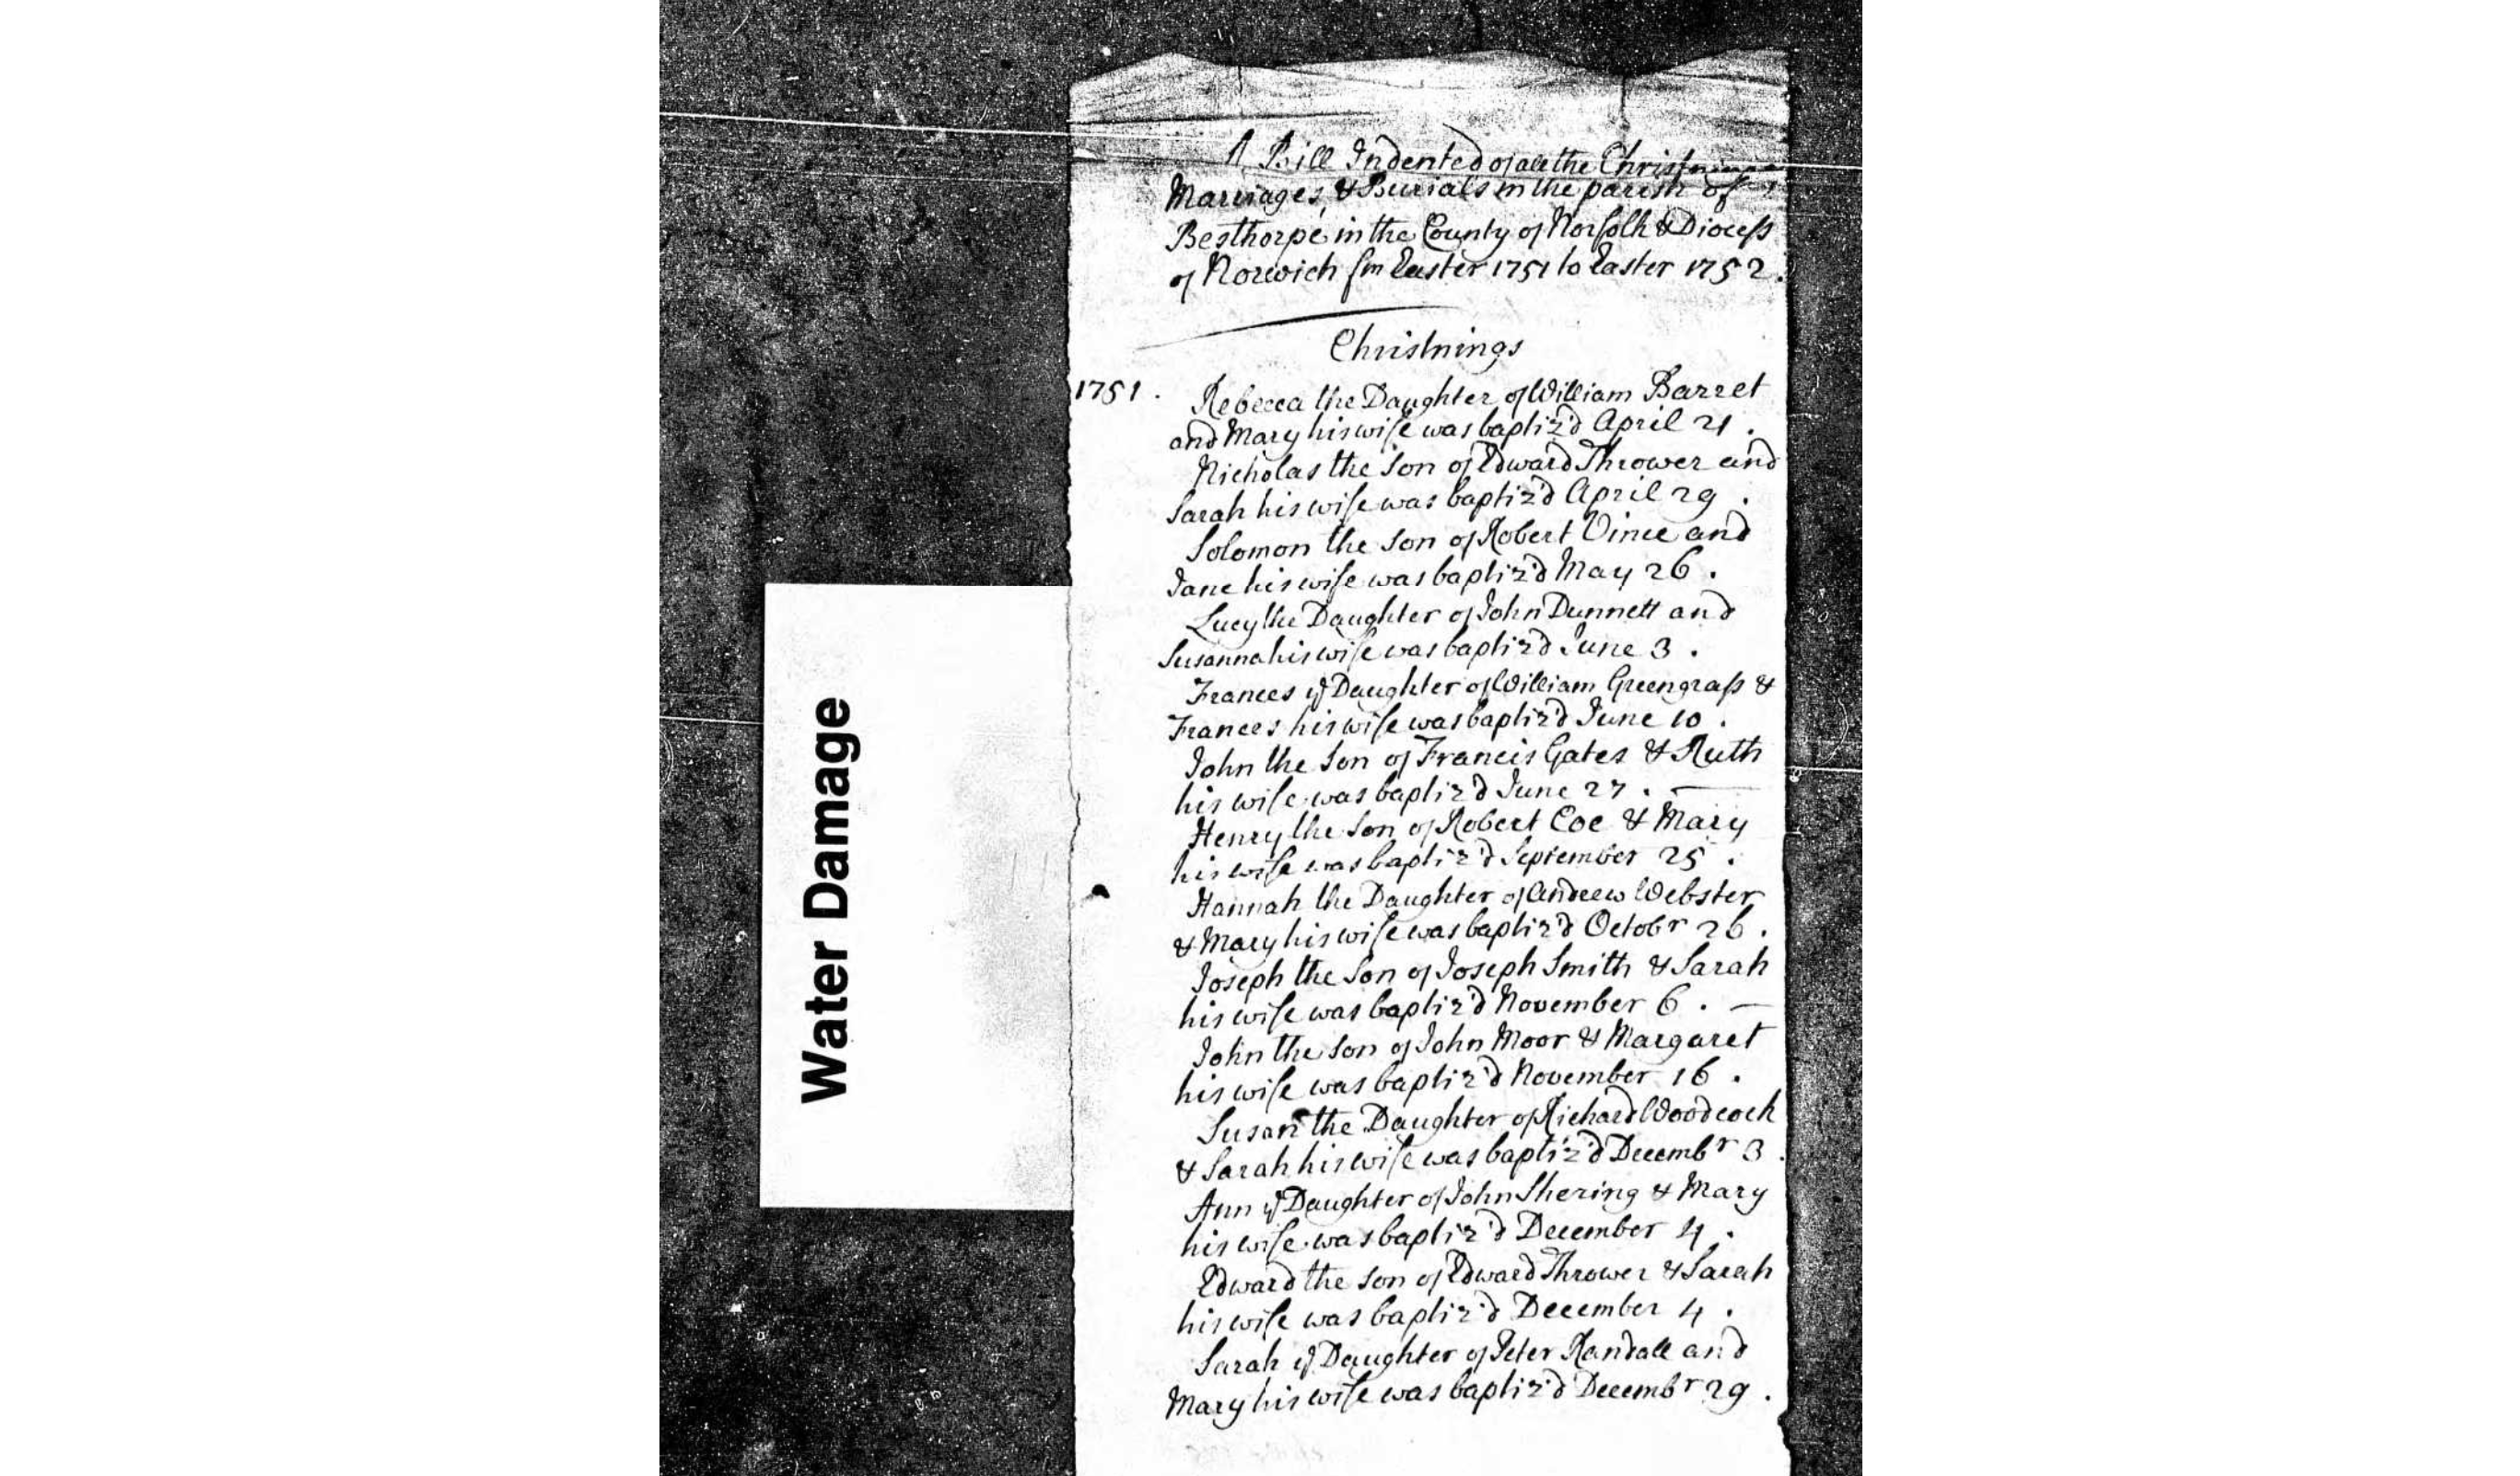 A Bill Indented of all the Christnings
Marriages, & Burials in the parish of
Besthorpe in the County of Norfolk & Diocess
of Norwich fm Easter 1751 to Easter 1752.
Christnings
1751. Rebecca the Daughter of William Barret
and Mary his wife was baptiz'd April 21.
Nicholas the Son of Edward Thrower and
Sarah his wife was baptiz'd April 29.
Solomon the Son of Robert Vince and
Jane his wife was baptiz'd May 26.
Lucy the Daughter of John Dunnett and
Susanna his wife was baptiz'd June 3.
Frances ye Daughter of William Greengrass &
Frances his wife was baptiz'd June 10.
John the Son of Francis Gates & Ruth
his wife was baptiz'd June 27.
Henry the Son of Robert Coe & Mary
his wife was baptiz'd September 25.
Hannah the Daughter of Andrew Webster
& Mary his wife was baptiz'd Octobr 26.
Joseph the Son of Joseph Smith & Sarah
his wife was baptiz'd November 6.
John the Son of John Moor & Margaret
his wife was baptiz'd November 16.
Susan the Daughter of Richard Woodcock
& Sarah his wife was baptiz'd Decembr 3.
Ann ye Daughter of John Shering & Mary
his wife was baptiz'd December 4.
Edward the Son of Edward Thrower & Sarah
his wife was baptiz'd December 4.
Sarah ye Daughter of Peter Randall and
Mary his wife was baptiz'd Decembr 29.
Water Damage